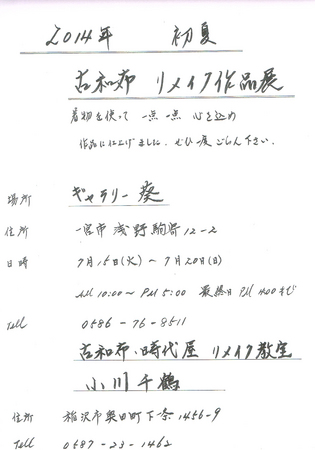 2014年 初夏
古和布 リメイク作品展
着物を使って 一点一点 心を込め
作品に仕上げました。ぜひ一度ごらん下さい.
場所 ギャラリー葵
住所 一宮市浅野駒寄12-2
日時 7月15日(火)~7月20日(日)
AM 10:00~PM 5:00 最終日 PM 4:00まで
Tell 0586-76-8511
古和布・時代屋 リメイク教室
小川千鶴
住所 稲沢市奥田町下条1456-9
Tell 0587-23-1462